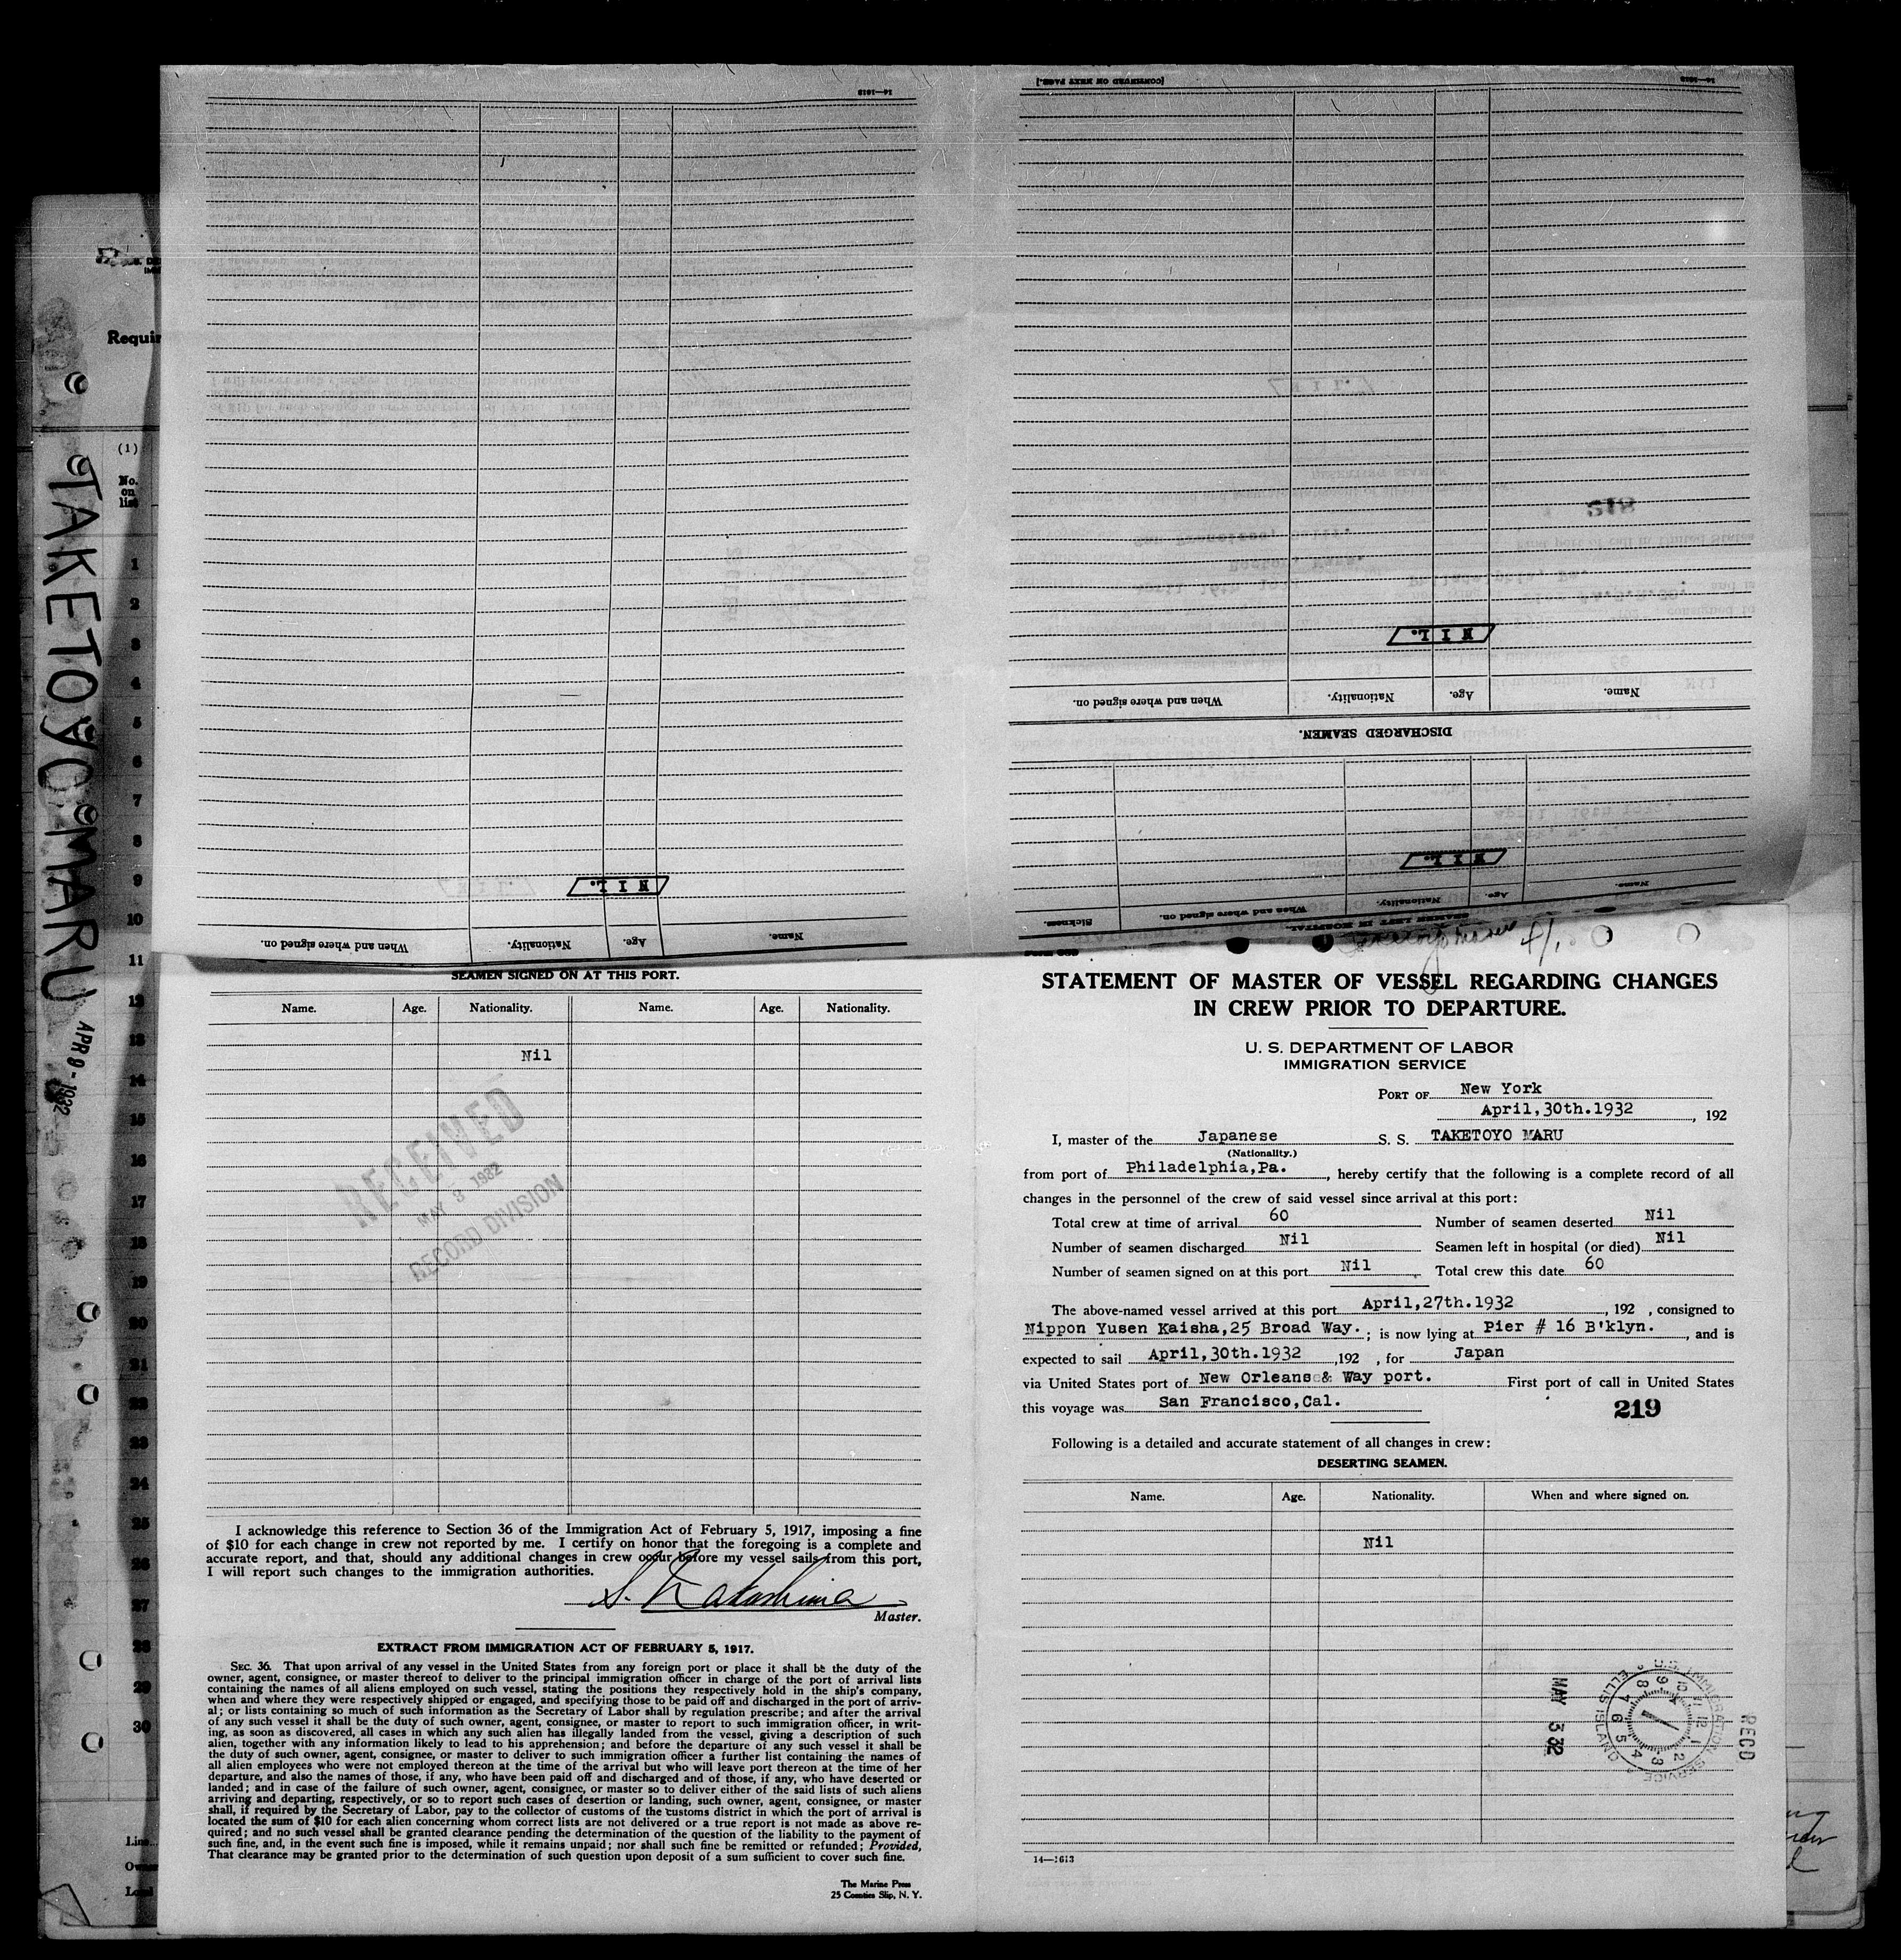 14—1613
[CONTINUED ON NEXT PAGE.]
14—1613
Requir
(1)
No.
on
list
TAKETOYO MARU
APR 9 - 1932
1
2
3
4
5
6
7
8
9
10
11
12
13
14
15
16
17
18
19
20
21
22
23
24
25
26
27
28
29
30
Line
Owner
Local
NIL.
Name. Age. Nationality. When and where signed on.
NIL.
Name. Age. Nationality. When and where signed on.
DISCHARGED SEAMEN.
NIL.
Name. Age. Nationality. When and where signed on. Sickness.
SEAMEN LEFT IN HOSPITAL.
SEAMEN SIGNED ON AT THIS PORT.
Name. Age. Nationality. Name. Age. Nationality.
Nil
RECEIVED
MAY 3 1932
RECORD DIVISION
I acknowledge this reference to Section 36 of the Immigration Act of February 5, 1917, imposing a fine
of $10 for each change in crew not reported by me. I certify on honor that the foregoing is a complete and
accurate report, and that, should any additional changes in crew occur before my vessel sails from this port,
I will report such changes to the immigration authorities.
S. Nakashima
Master.
EXTRACT FROM IMMIGRATION ACT OF FEBRUARY 5, 1917.
SEC. 36. That upon arrival of any vessel in the United States from any foreign port or place it shall be the duty of the
owner, agent, consignee, or master thereof to deliver to the principal immigration officer in charge of the port of arrival lists
containing the names of all aliens employed on such vessel, stating the positions they respectively hold in the ship's company,
when and where they were respectively shipped or engaged, and specifying those to be paid off and discharged in the port of arriv-
al; or lists containing so much of such information as the Secretary of Labor shall by regulation prescribe; and after the arrival
of any such vessel it shall be the duty of such owner, agent, consignee, or master to report to such immigration officer, in writ-
ing, as soon as discovered, all cases in which any such alien has illegally landed from the vessel, giving a description of such
alien, together with any information likely to lead to his apprehension; and before the departure of any such vessel it shall be
the duty of such owner, agent, consignee, or master to deliver to such immigration officer a further list containing the names of
all alien employees who were not employed thereon at the time of the arrival but who will leave port thereon at the time of her
departure, and also the names of those, if any, who have been paid off and discharged and of those, if any, who have deserted or
landed; and in case of the failure of such owner, agent, consignee, or master so to deliver either of the said lists of such aliens
arriving and departing, respectively, or so to report such cases of desertion or landing, such owner, agent, consignee, or master
shall, if required by the Secretary of Labor, pay to the collector of customs of the customs district in which the port of arrival is
located the sum of $10 for each alien concerning whom correct lists are not delivered or a true report is not made as above re-
quired; and no such vessel shall be granted clearance pending the determination of the question of the liability to the payment of
such fine, and, in the event such fine is imposed, while it remains unpaid; nor shall such fine be remitted or refunded; Provided,
That clearance may be granted prior to the determination of such question upon deposit of a sum sufficient to cover such fine.
The Marine Press
25 Coenties Slip, N. Y.
STATEMENT OF MASTER OF VESSEL REGARDING CHANGES
IN CREW PRIOR TO DEPARTURE.
U. S. DEPARTMENT OF LABOR
IMMIGRATION SERVICE
PORT OF New York
April,30th.1932, 192
I, master of the Japanese S. S. TAKETOYO MARU
(Nationality.)
from port of Philadelphia,Pa., hereby certify that the following is a complete record of all
changes in the personnel of the crew of said vessel since arrival at this port:
Total crew at time of arrival 60 Number of seamen deserted Nil
Number of seamen discharged Nil Seamen left in hospital (or died) Nil
Number of seamen signed on at this port Nil Total crew this date 60
The above-named vessel arrived at this port April,27th.1932, 192 , consigned to
Nippon Yusen Kaisha,25 Broad Way.; is now lying at Pier # 16 B'klyn., and is
expected to sail April,30th.1932 ,192 , for Japan
via United States port of New Orleans & Way port. First port of call in United States
this voyage was San Francisco,Cal.
219
Following is a detailed and accurate statement of all changes in crew:
DESERTING SEAMEN.
Name. Age. Nationality. When and where signed on.
Nil
RECD
U.S. IMMIGRATION SERVICE ELLIS ISLAND
12 1 2 3 4 5 6 7 8 9 10 11
MAY 3 32
14—1613